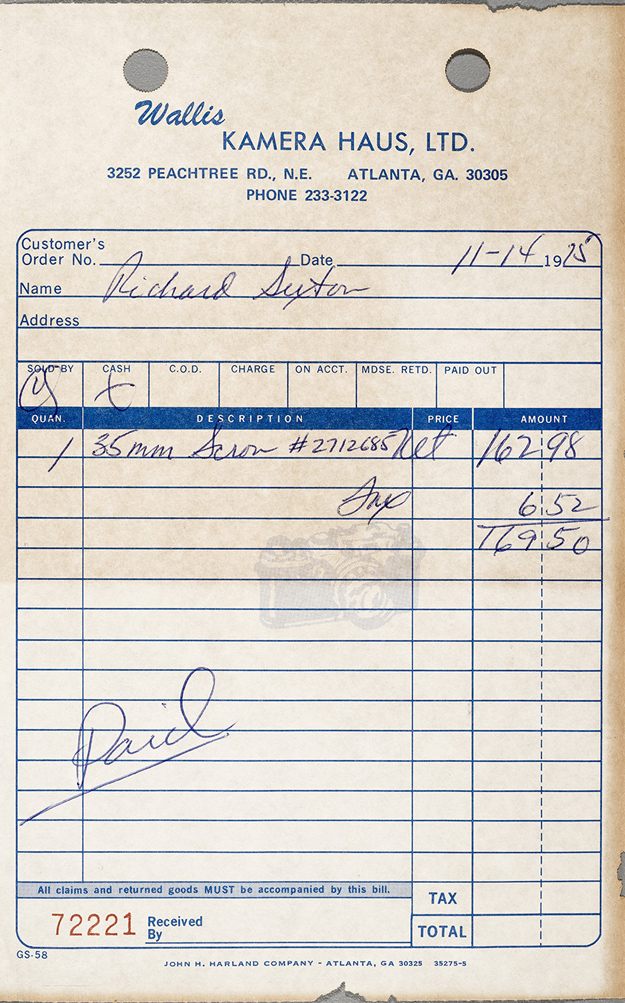 Wallis
KAMERA HAUS, LTD.
3252 PEACHTREE RD., N.E. ATLANTA, GA. 30305
PHONE 233-3122
Customer's
Order No. Date 11-14 1975
Name Richard Sexton
Address
SOLD BY CASH C.O.D. CHARGE ON ACCT. MDSE. RETD. PAID OUT
QUAN. DESCRIPTION PRICE AMOUNT
1 35mm #2712685 Net 162 98
Tax 6 52
169 50
Paid
All claims and returned goods MUST be accompanied by this bill.
TAX
72221 Received
By
TOTAL
GS-58
JOHN H. HARLAND COMPANY - ATLANTA, GA 30325 35275-5